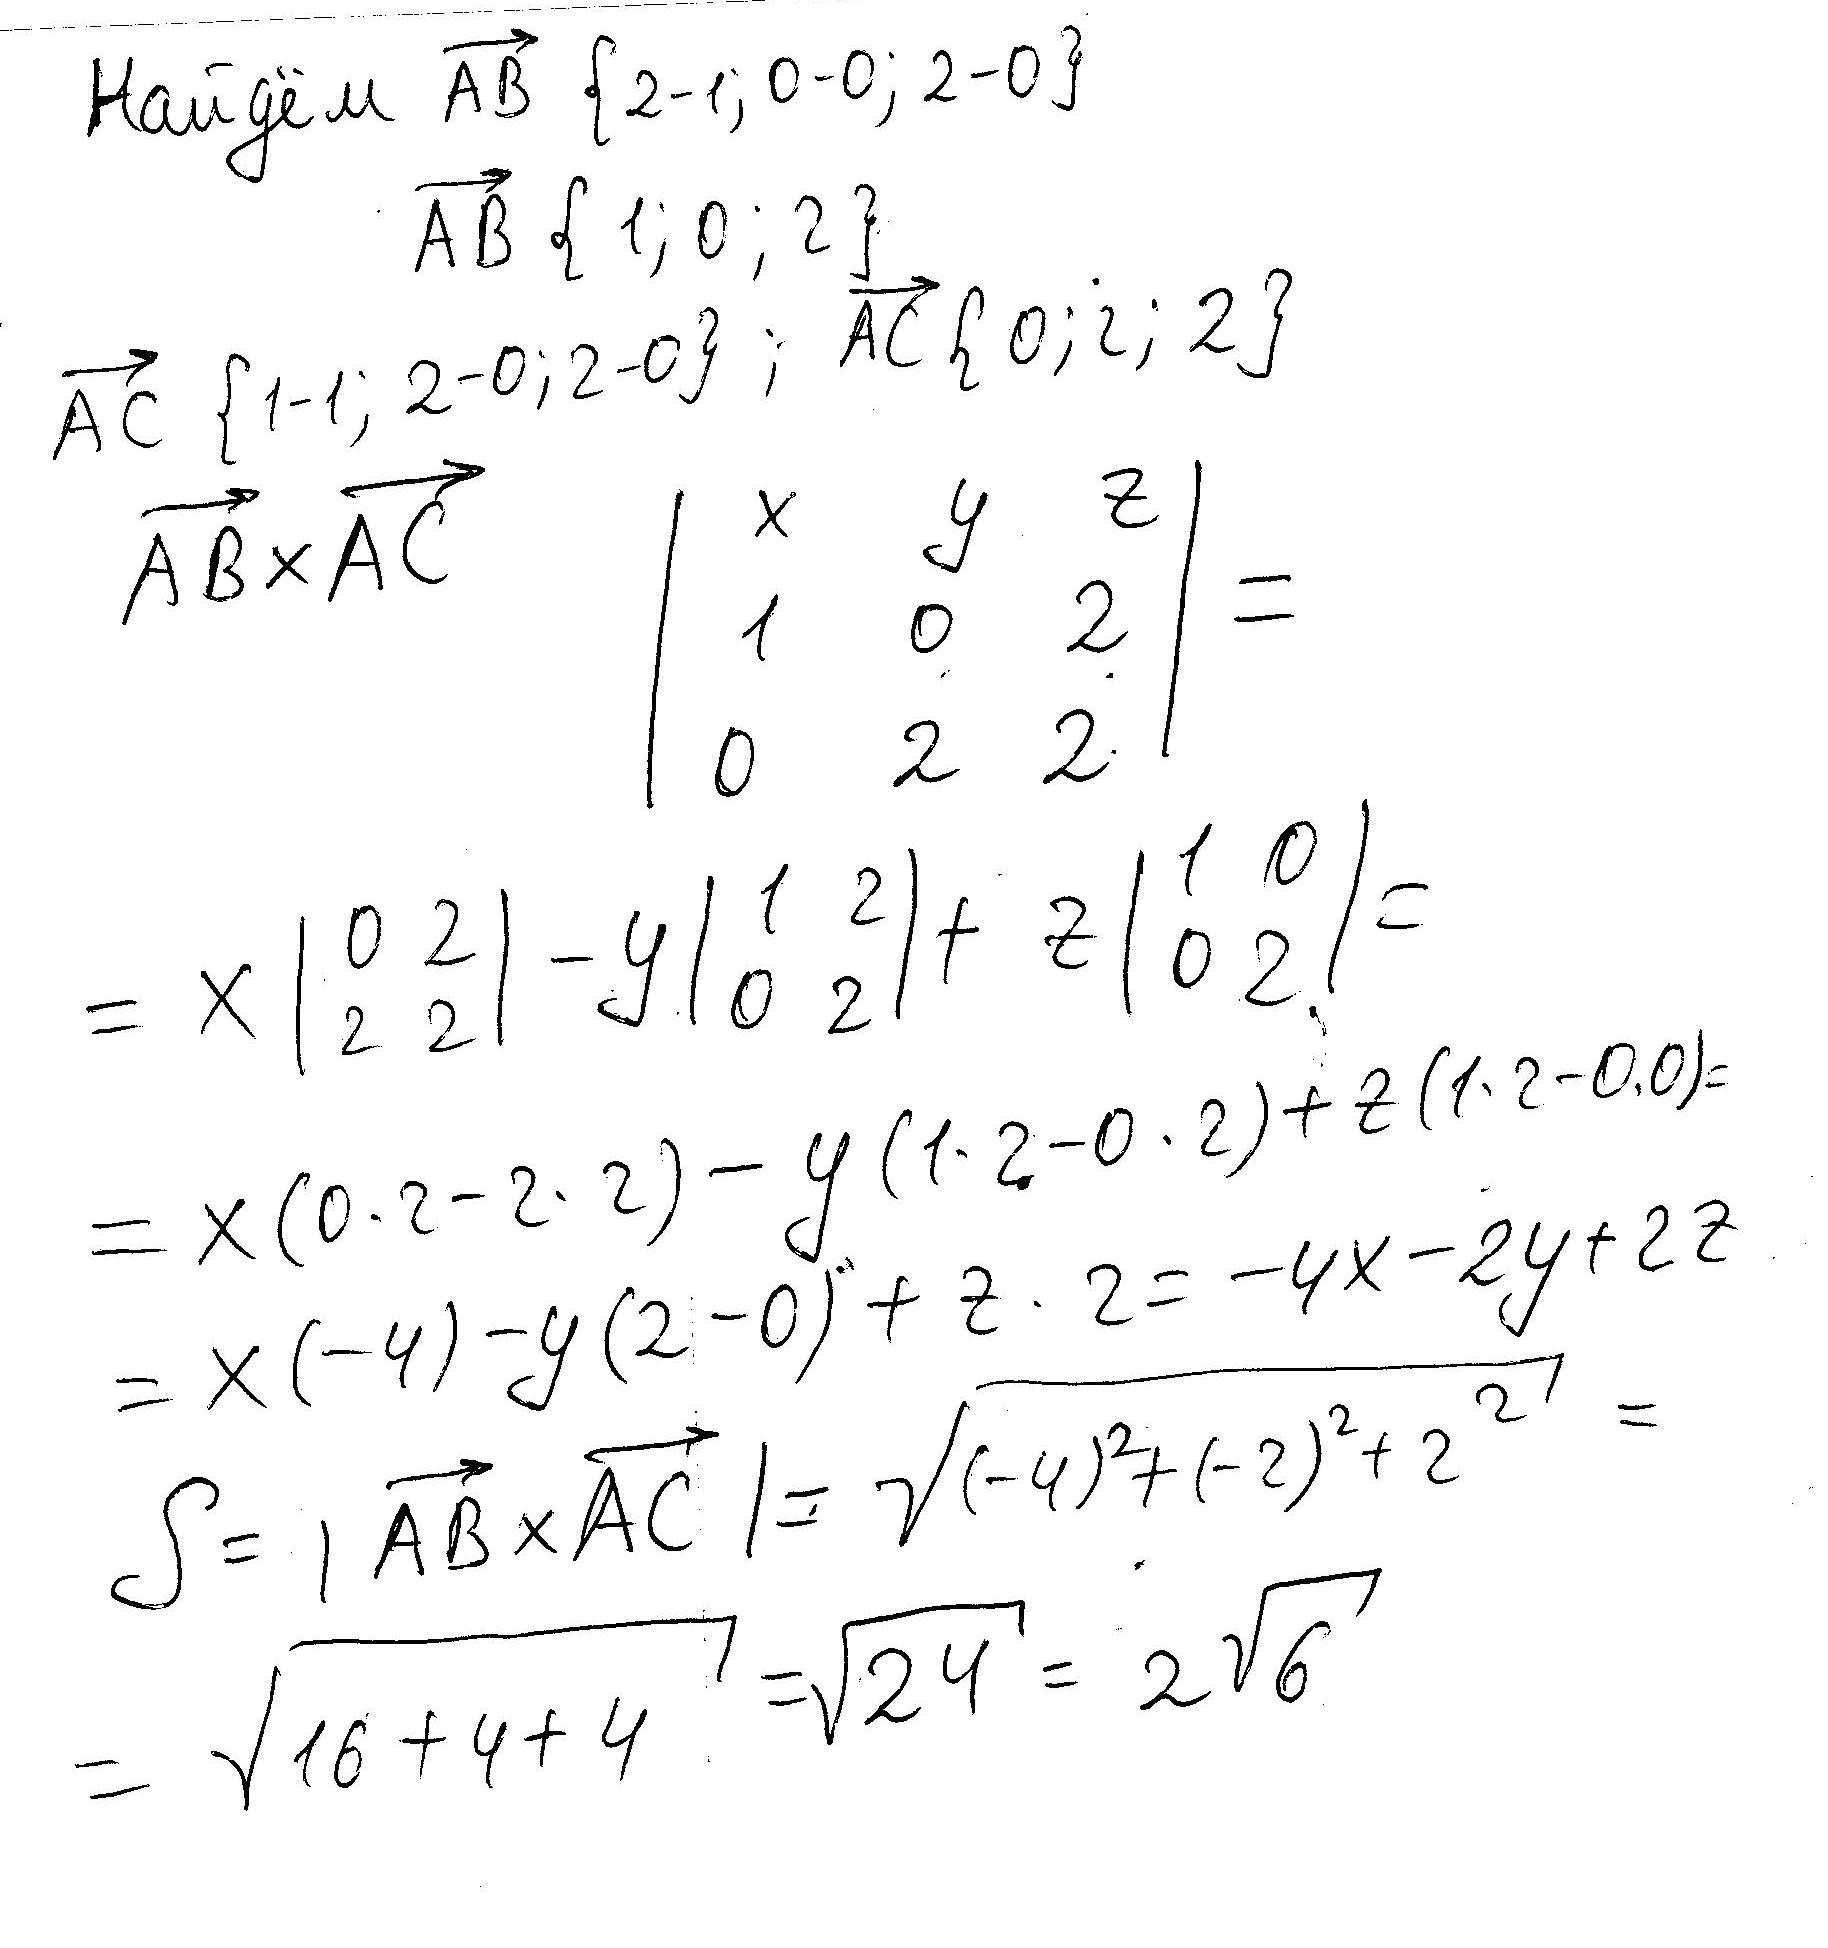 Найдём →AB {2-1; 0-0; 2-0}
→AB {1; 0; 2}
→AC {1-1; 2-0; 2-0}; →AC {0; 2; 2}
→AB × →AC | x y z | =
1 0 2
0 2 2
= x |0 2| - y |1 2| + z |1 0| =
2 2 0 2 0 2
= x(0·2-2·2) - y(1·2-0·2) + z(1·2-0·0) =
= x(-4) - y(2-0) + z·2 = -4x - 2y + 2z
S = |→AB × →AC| = √((-4)² + (-2)² + 2²) =
= √(16+4+4) = √24 = 2√6